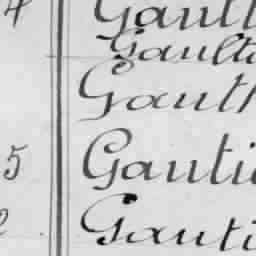 4 Gault
Gault
Gauth
5 Gauti
2 Gauti